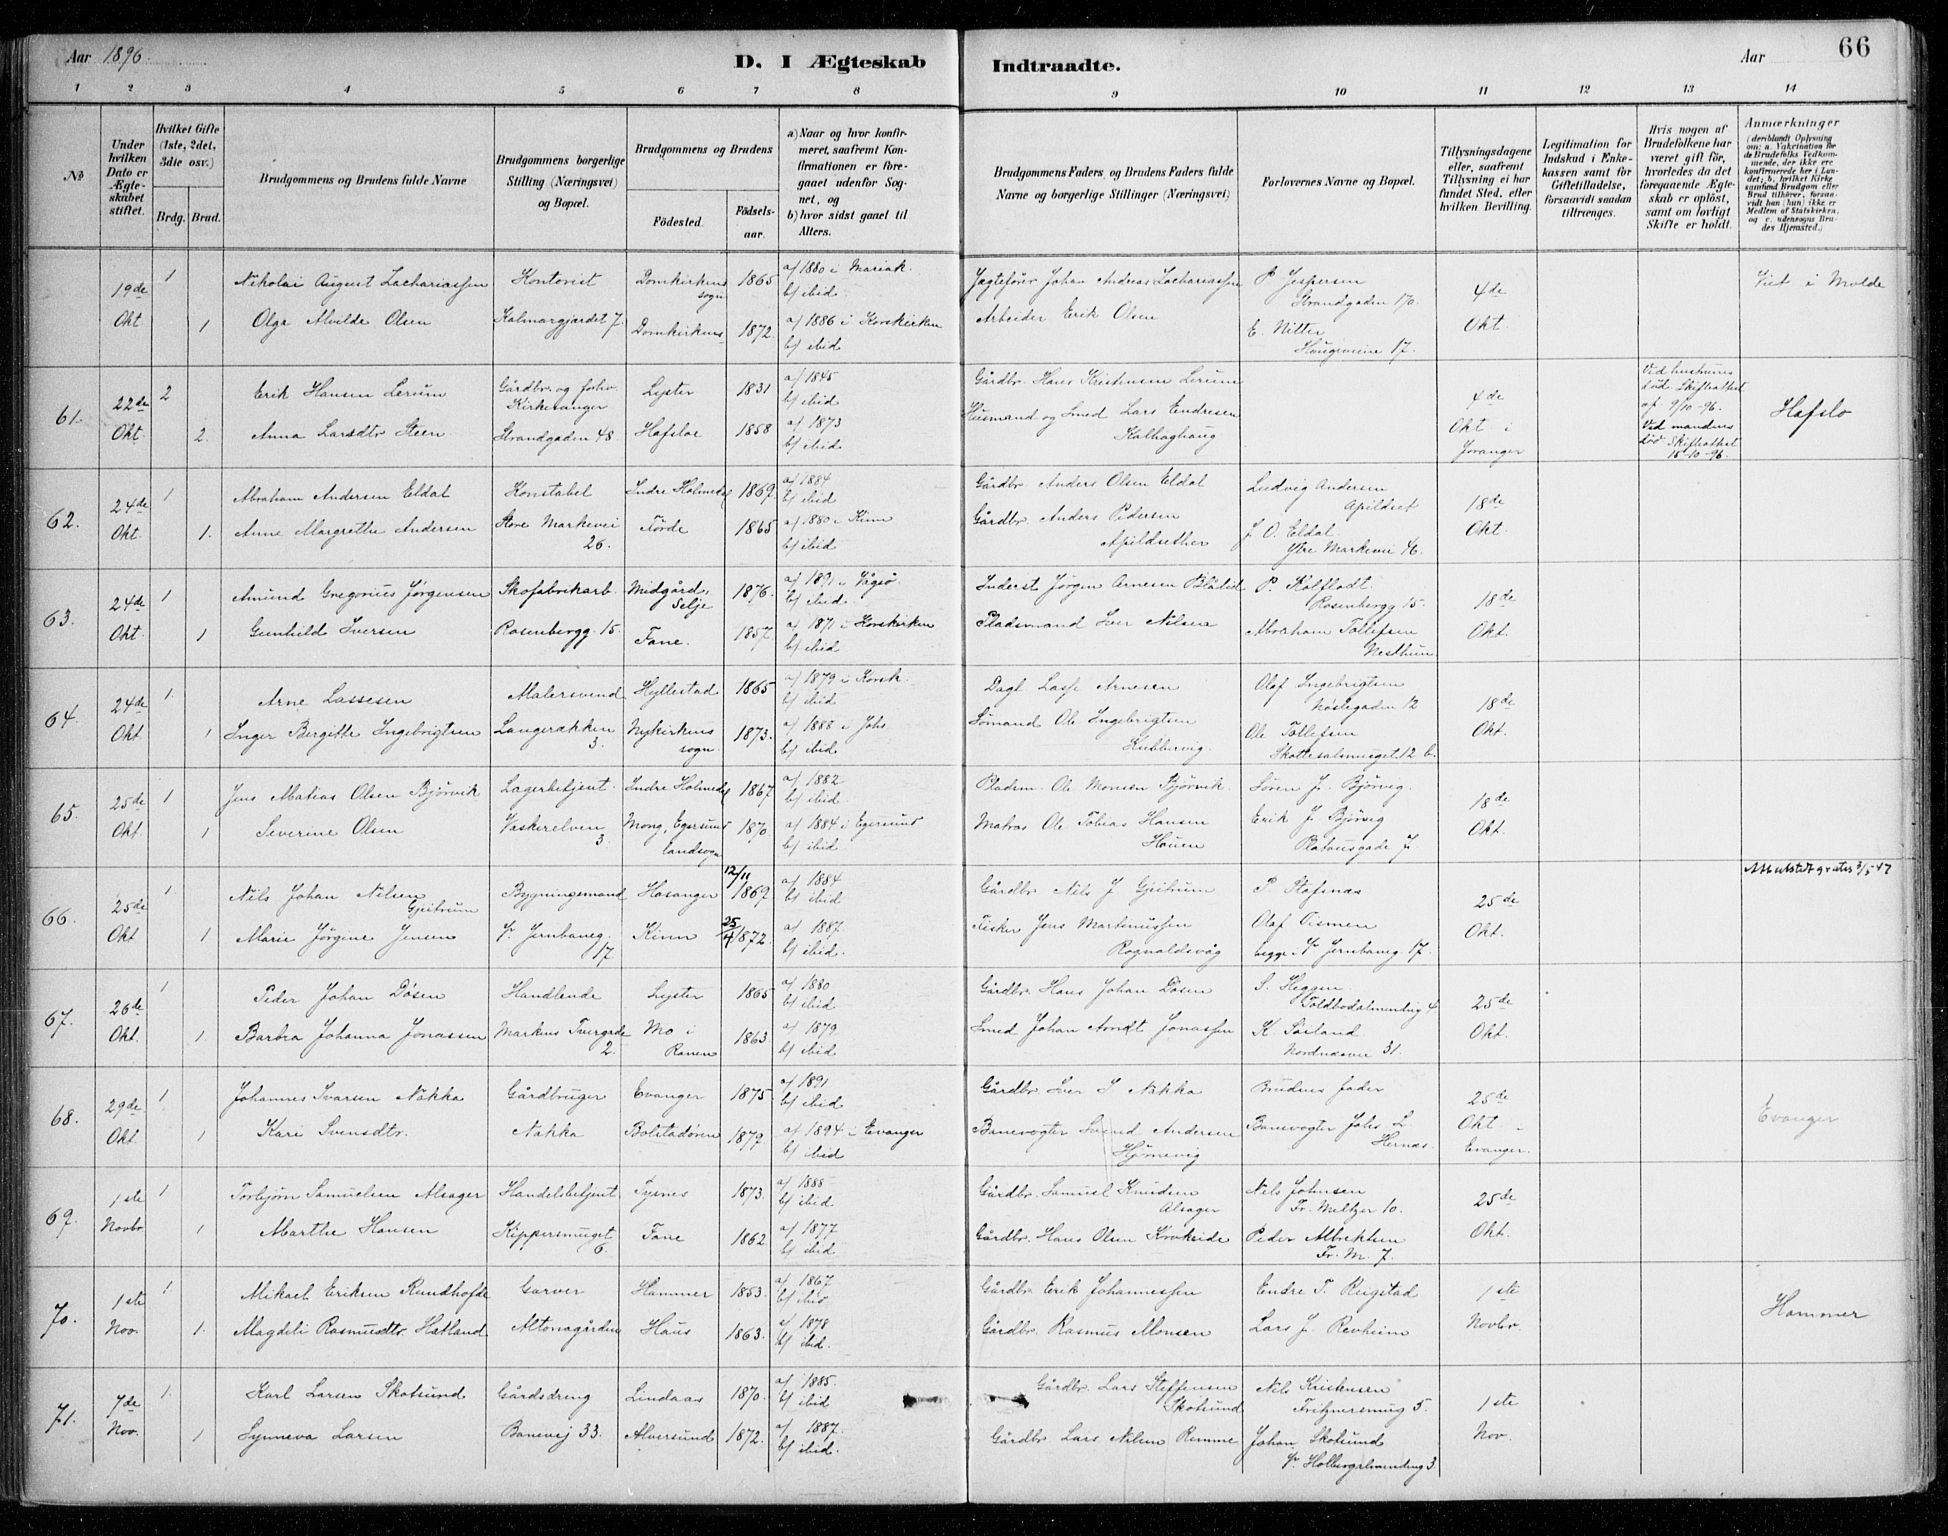 Aar 1896.
D. I Ægteskab Indtraadte.
Aar
66
1 2 3 4 5 6 7 8 9 10 11 12 13 14
№
Under hvilken Dato er Ægteskabet stiftet.
Hvilket Gifte (1ste, 2det, 3die osv.)
Brdg. Brud.
Brudgommens og Brudens fulde Navne
Brudgommens borgerlige Stilling (Næringsvei) og Bopæl.
Brudgommens og Brudens
Födested.
Födselsaar.
a) Naar og hvor konfirmeret, saafremt Konfirmationen er foregaaet udenfor Sognet, og
b) hvor sidst gaaet til Alters.
Brudgommens Faders og Brudens Faders fulde Navne og borgerlige Stillinger (Næringsvei)
Forlovernes Navne og Bopæl.
Tillysningsdagene eller, saafremt Tillysning ei har fundet Sted, efter hvilken Bevilling.
Legitimation for Indskud i Enkekassen samt for Giftetilladelse, forsaavidt saadan tiltrænges.
Hvis nogen af Brudefolkene har været gift för, hvorledes da det foregaaende Ægteskab er oplöst, samt om lovligt Skifte er holdt.
Anmærkninger (deriblandt Oplysning om: a. Vaksination for de Brudefolks Vedkommende, der ikke ere konfirmerede her i Landet; b. hvilket Kirkesamfund Brudgom eller Brud tilhörer, forsaavidt han (hun) ikke er Medlem af Statskirken, og c. udensogns Brudes Hjemsted.)
19de 1 Nikolai August Zachariassen Kontorist Domkirkens sogn 1865 a/ 1880 i Mariak. b/ ibid Jagtefører Johan Andreas Zachariassen P. Jespersen Strandgaden 170. 4de Viet i Molde
Okt 1 Olga Alvilde Olsen Kalmargjærdet 7. Domkirkens 1872. a/ 1886 i Korskirken b/ ibid Arbeider Erik Olsen E. Nitter Haugeveien 17. Okt.
61. 22de 2 Erik Hansen Lerum Gårdbr. og forhv. Kirkesanger Lyster 1831 a/ 1845 b/ ibid Gårdbr. Hans Kristensen Lerum 4de Ved hustruens død. Skifteattest af 9/10-96. Hafslo
Okt. 2. Anna Larsdtr Steen Strandgaden 48 Hafsloe 1858 a/ 1873 b/ ibid Husmand og Smed Lars Endresen Kalhaghaug Okt i Joranger Ved mandens død Skifteattest 15-10-96.
62. 24de 1 Abraham Andersen Eldal Konstabel Indre Holmedal 1869. a/ 1884 b/ ibid. Gårdbr. Anders Olsen Eldal Ludvig Andersen Apildset 18de
Okt. 1. Anne Margrethe Andersen Store Markevei 26. Førde 1865 a/ 1880 i Kinn b/ ibid Gårdbr. Anders Pedersen Apildsether J. O. Eldal Ytre Markevei 46. Okt.
63. 24de 1 Amund Gregorius Jørgensen Skofabrikarb. Midgård, Selje 1876. a/ 1891 i Vågsø. b/ ibid. Inderst Jørgen Arnesen Blålid P. Kålfladt. Rosenbergg 15. 18de
Okt. 1 Gunhild Iversen Rosenbergg. 15. Fane. 1857. a/ 1871 i Korskirken b/ ibid Pladsmand Iver Nilsen Abraham Tollefsen Nesthun Okt.
64. 24de 1. Arne Lassesen Malersvend Hyllestad 1865 a/ 1879 i Korsk. b/ ibid Dagl. Lasse Arnesen Olaf Ingebrigtsen Nøstegaden 12 18de
Okt. 1 Inger Bergitte Ingebrigtsen Langerækken 3. Nykirkens sogn. 1873. a/ 1888 i Johs b/ ibid. Sømand Ole Ingebrigtsen Kubbervig. Ole Tollefsen Skottesalsmuget 12 b. Okt.
65. 25de 1 Jens Matias Olsen Bjørvik Lagerbetjent. Indre Holmedal 1867 a/ 1882 b/ ibid. Pladsm. Ole Monsen Bjørvik Søren J. Bjørvig. 18de
Okt. 1 Severine Olsen Vaskerelven 3. Mong, Egersund landsogn 1870 a/ 1884 i Egersund b/ ibid. Matros Ole Tobias Hansen Hauen Erik J. Bjørvig Platousgade 7. Okt.
66. 25de 1. Nils Johan Nilsen Gjeitrum Bygningsmand Hosanger 12/11 1869 a/ 1884 b/ ibid Gårdbr. Nils J. Gjeitrum P. Stafsnæs 25de Attest utstedt gratis 3/5-47
Okt 1 Marie Jørgine Jensen N. Jernbaneg. 17 Kinn 25/4 1872. a/ 1887. b/ ibid. Fisker Jens Martinussen Rognaldsvåg Olaf Tismen begge N. Jernbaneg. 17. Okt.
67. 26de 1 Peder Johan Døsen Handlende Lyster 1865 a/ 1880 b/ ibid Gårdbr. Hans Johan Døsen S. Heggen Toldbodalmening 4 25de
Okt. 1. Barbra Johanna Jonassen Markus Tvergade 2. Mo i Ranen 1863 a/ 1879. b/ ibid Smed Johan Arndt Jonassen K. Søiland Nordnæsvei 31. Okt.
68. 29de 1. Johannes Ivarsen Nakka Gårdbruger Evanger 1875. a/ 1891 b/ ibid Gårdbr. Iver I Nakka Brudens fader 25de Evanger
Okt. 1 Kari Svensdtr. Nakka Bolstadøren 1879. a/ 1894 i Evanger b/ ibid Banevogter Svend Andersen Hjørnevig Banevogter Johs L. Hernæs. Okt. i Evanger.
69. 1ste 1 Torbjørn Samuelsen Alsager Handelsbetjent Tysnes 1873. a/ 1888 b/ ibid. Gårdbr. Samuel Knudsen Alsager Nils Johnsen Fr. Meltzer 10. 25de
Novbr. 1. Marthe Hansen Kippersmuget 6. Fane 1862 a/ 1877 b/ ibid. Gårdbr. Hans Olsen Krokeide Peder Albrektsen Fr. M. 7. Okt.
70. 1ste 1 Mikael Eriksen Rundhofde Garver Hammer 1853. a/ 1867 b/ ibid Gårdbr. Erik Johannessen Endre T. Rugstad 1ste Hammer
Nov. 1. Magdeli Rasmusdtr. Hatland Altonagården Haus 1863. a/ 1878 b/ ibid. Gårdbr. Rasmus Monsen Lars J. Revheim Novbr.
71. 7de 1. Karl Larsen Skotsund Gårdsdreng Lindaas 1870. a/ 1885. b/ ibid Gårdbr. Lars Steffensen Skotsund Nils Kristensen Fritznersmug 5. 1ste
Nov. 1 Synneva Larsen Banevej 33. Alversund 1872. a/ 1887. b/ ibid. Gårdbr. Lars Nilsen Remme Johan Skotsund N. Holbergsalmending 3. Nov.